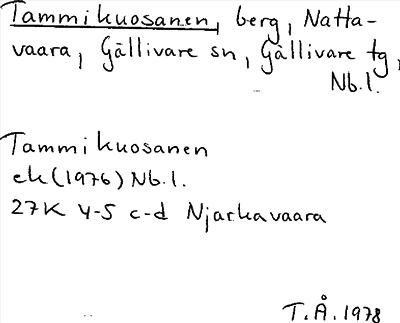 Tammikuosanen, berg, Natta-
vaara, Gällivare sn, Gällivare tg,
Nb.l.
Tammikuosanen
ek (1976) Nb.l.
27K 4-5 c-d Njarkavaara
T.Å. 1978